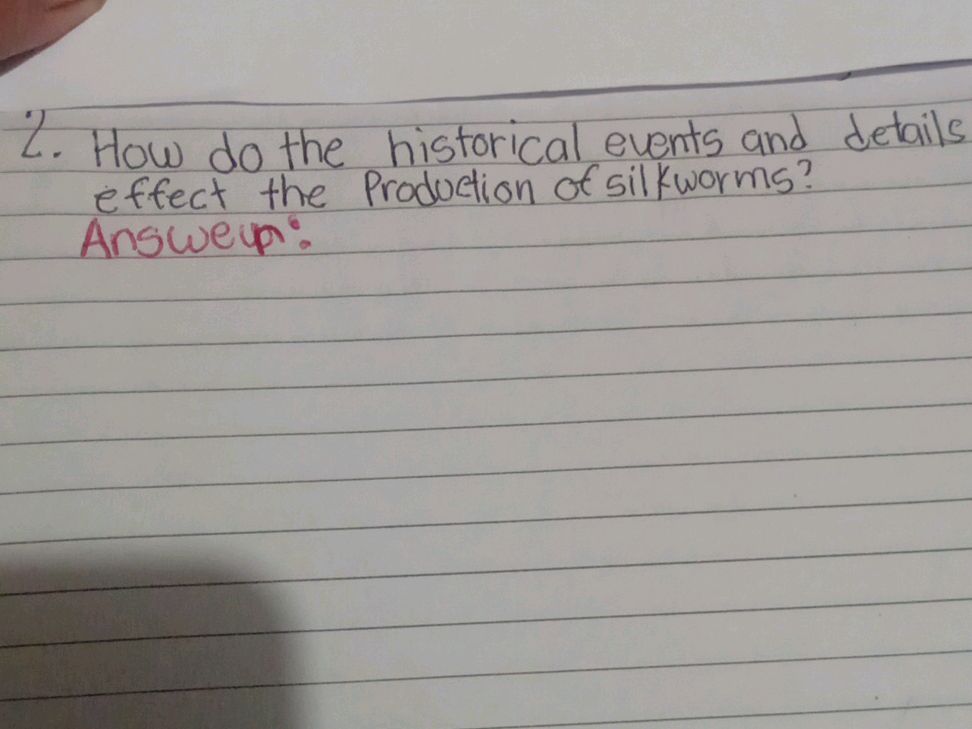 2. How do the historical events and details
effect the Production of silkworms?
Answer: